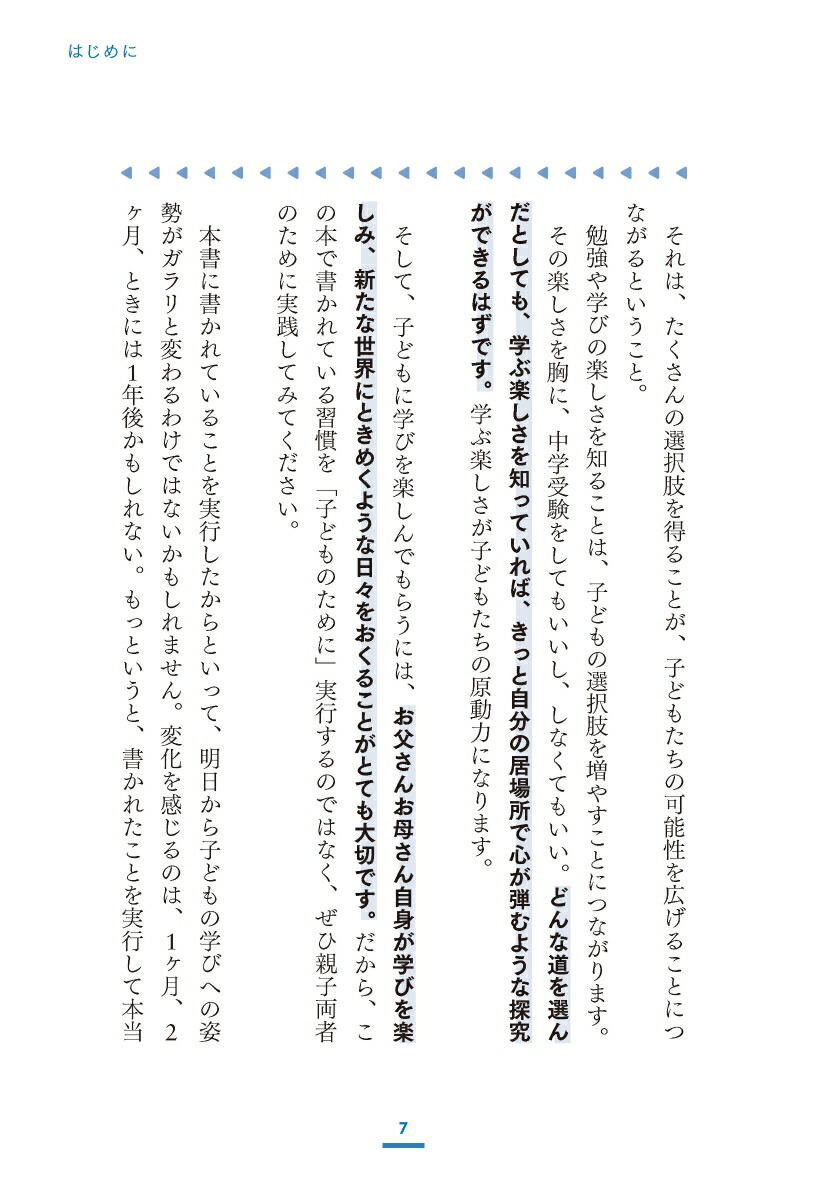 はじめに
それは、たくさんの選択肢を得ることが、子どもたちの可能性を広げることにつ
ながるということ。
勉強や学びの楽しさを知ることは、子どもの選択肢を増やすことにつながります。
その楽しさを胸に、中学受験をしてもいいし、しなくてもいい。どんな道を選ん
だとしても、学ぶ楽しさを知っていれば、きっと自分の居場所で心が弾むような探究
ができるはずです。学ぶ楽しさが子どもたちの原動力になります。
そして、子どもに学びを楽しんでもらうには、お父さんお母さん自身が学びを楽
しみ、新たな世界にときめくような日々をおくることがとても大切です。だから、こ
の本で書かれている習慣を「子どものために」実行するのではなく、ぜひ親子両者
のために実践してみてください。
本書に書かれていることを実行したからといって、明日から子どもの学びへの姿
勢がガラリと変わるわけではないかもしれません。変化を感じるのは、1ヶ月、2
ヶ月、ときには1年後かもしれない。もっというと、書かれたことを実行して本当
7